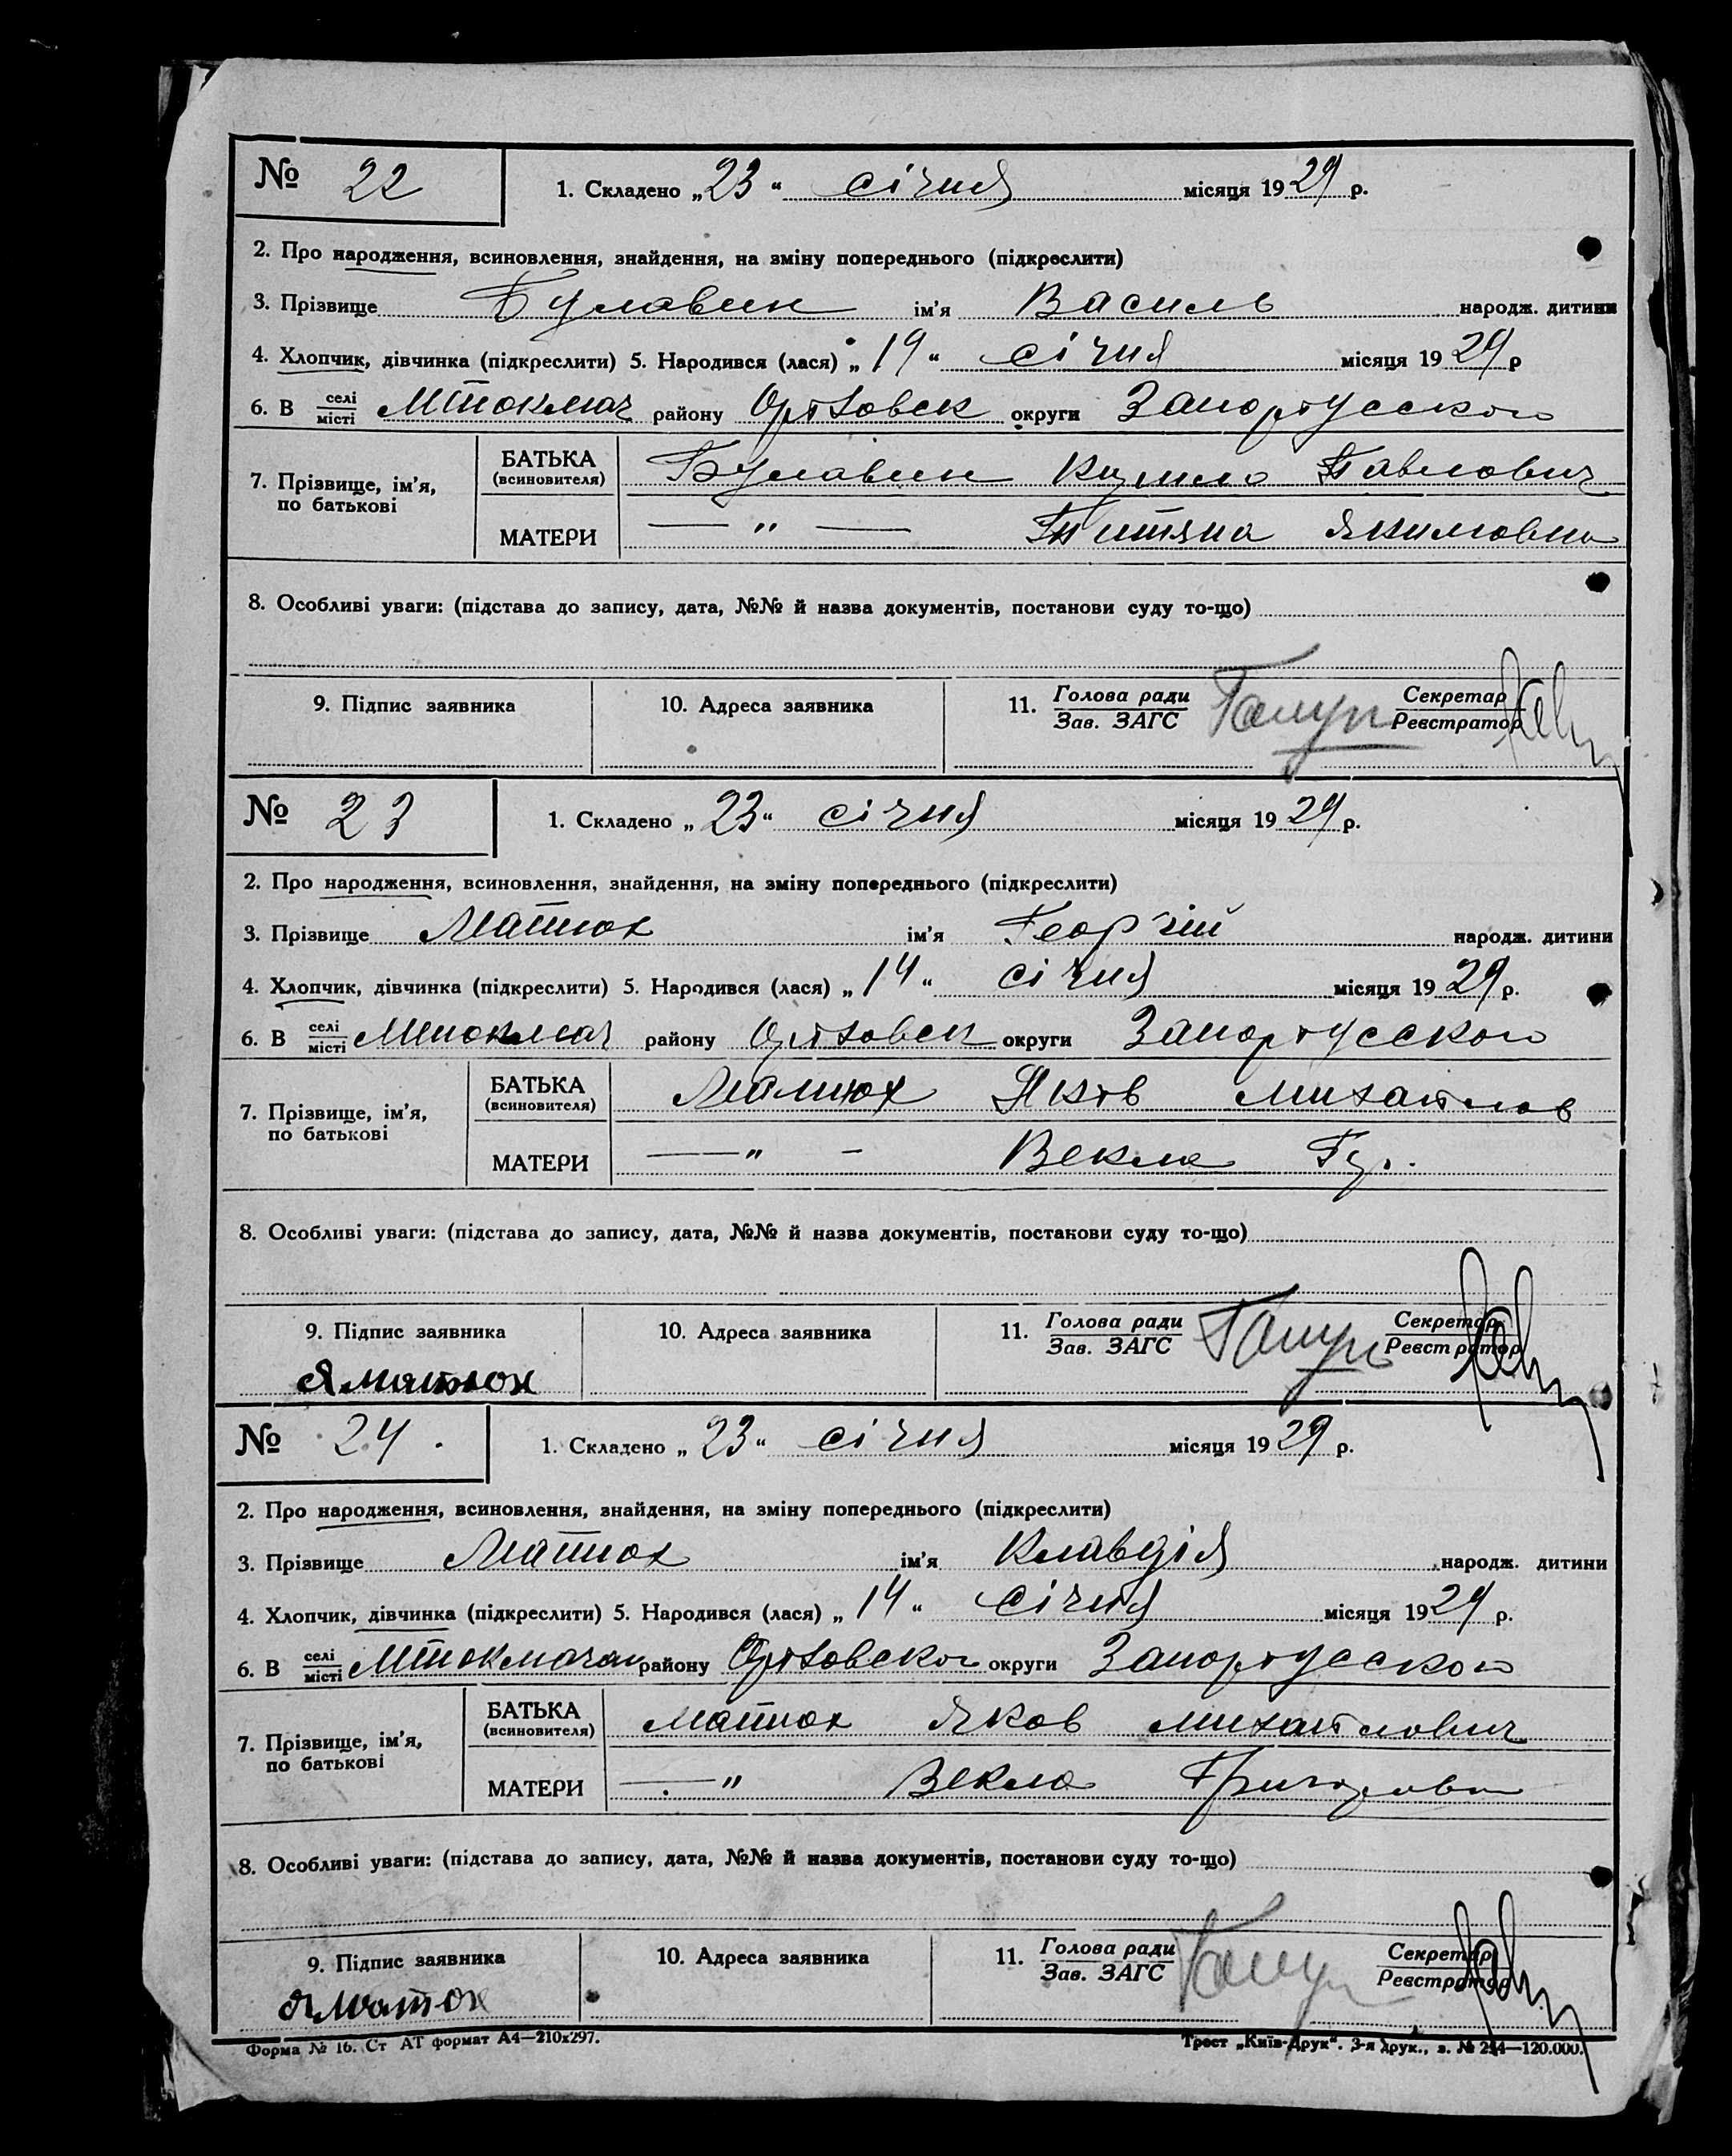 № 22 1. Складено „23“ січня місяця 1929 р.
2. Про народження, всиновлення, знайдення, на зміну попереднього (підкреслити)
3. Прізвище Булавин ім'я Василь народж. дитини
4. Хлопчик, дівчинка (підкреслити) 5. Народився (лася) „19“ січня місяця 1929 р
6. В селі місті МТокмач району Оріховск округи
7. Прізвище, ім'я, по батькові
БАТЬКА (всиновителя) Булавин Павлович
МАТЕРИ — „ — Якимовна
8. Особливі уваги: (підстава до запису, дата, №№ й назва документів, постанови суду то-що)
9. Підпис заявника 10. Адреса заявника 11. Голова ради Зав. ЗАГС Секретар Реєстратор
№ 23 1. Складено „23“ січня місяця 1929 р.
2. Про народження, всиновлення, знайдення, на зміну попереднього (підкреслити)
3. Прізвище Матюх ім'я Георгій народж. дитини
4. Хлопчик, дівчинка (підкреслити) 5. Народився (лася) „14“ січня місяця 1929 р.
6. В селі місті МТокмач району Оріховск округи
7. Прізвище, ім'я, по батькові
БАТЬКА (всиновителя) Михайлов
МАТЕРИ — „ – Векла Гр.
8. Особливі уваги: (підстава до запису, дата, №№ й назва документів, постанови суду то-що)
9. Підпис заявника 10. Адреса заявника 11. Голова ради Зав. ЗАГС Секретар Реєстратор
Я Матюх
№ 24. 1. Складено „23“ січня місяця 1929 р.
2. Про народження, всиновлення, знайдення, на зміну попереднього (підкреслити)
3. Прізвище Матюх ім'я Клавдія народж. дитини
4. Хлопчик, дівчинка (підкреслити) 5. Народився (лася) „14“ січня місяця 1929 р.
6. В селі місті району Оріховског округи
7. Прізвище, ім'я, по батькові
БАТЬКА (всиновителя) Матюх Яков Михайлович
МАТЕРИ — „ Векла
8. Особливі уваги: (підстава до запису, дата, №№ й назва документів, постанови суду то-що)
9. Підпис заявника 10. Адреса заявника 11. Голова ради Зав. ЗАГС Секретар Реєстратор
Я Матюх
Форма № 16. Ст АТ формат А4—210х297. Трест „Київ-Друк“. 3-я друк., з. № 254—120.000.